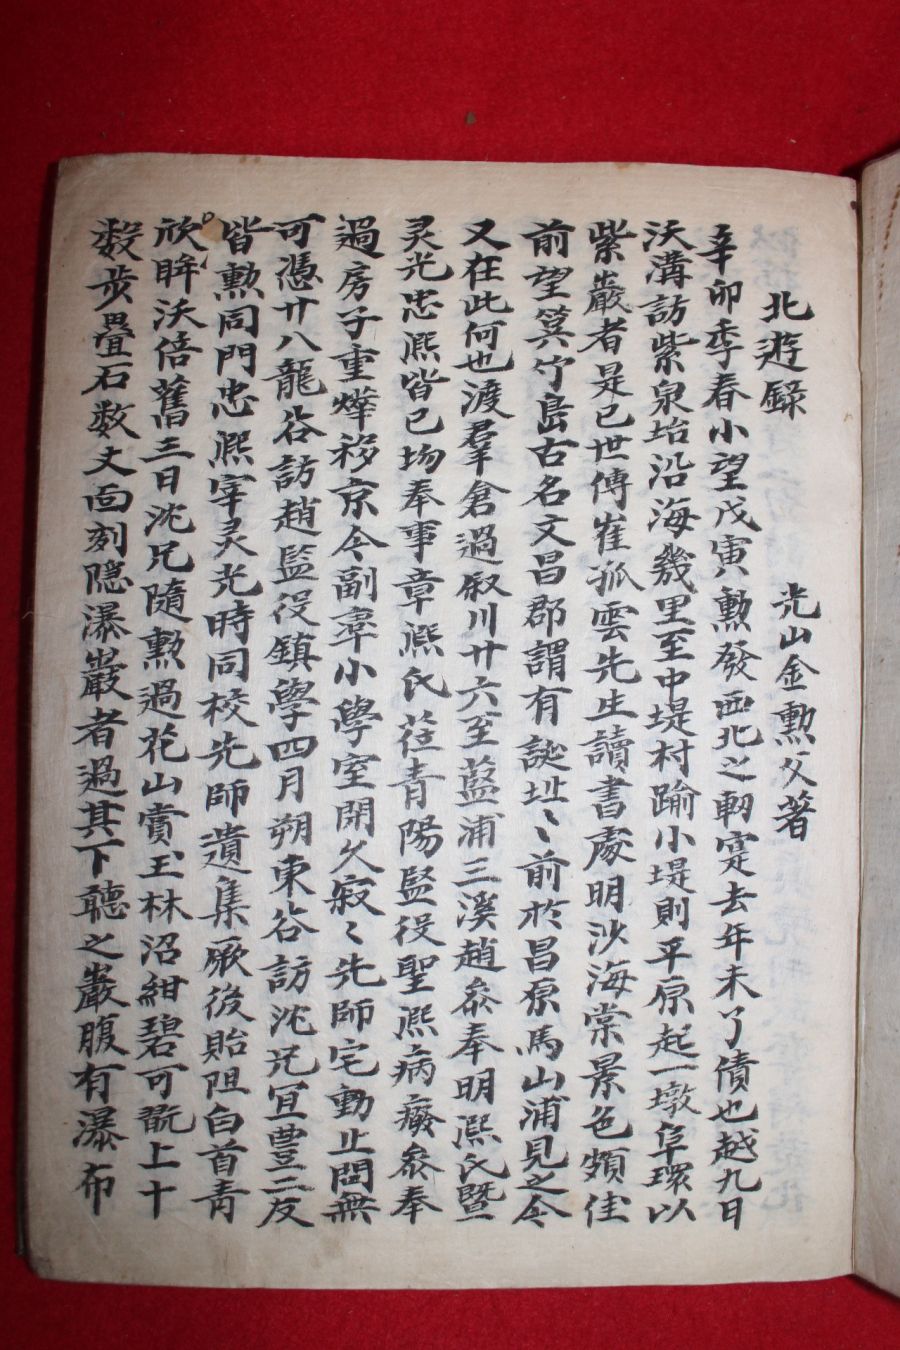 北遊録
光山金勲父著
辛卯季春小望戊寅勲發西北之軔寔去年未了債也越九日
沃溝訪紫泉坮沿海幾里至中堤村踰小堤則平原起一墩阜環以
紫巖者是已世傳崔孤雲先生讀書處明沙海棠景色頗佳
前望箕竹島古名文昌郡謂有誕址〻前於昌原馬山浦見之今
又在此何也渡羣倉過叙川廿六至藍浦三溪趙叅奉明熙氏曁
灵光忠熙皆已場奉事章熙氏莅青陽監役聖熙病癈叅奉
過房子重燁移京今副率小學室開久寂〻先師宅動止問無
可憑廿八龍谷訪趙監役鎮學四月朔東谷訪沈兄宜豊二友
皆勲同門忠熙宰灵光時同校先師遺集厥後貽阻白首青
欣眸沃倍舊三日沈兄隨勲過花山賞玉林沼紺碧可翫上十
数步疊石数丈面刻隠瀑巖者過其下聽之巖腹有瀑布